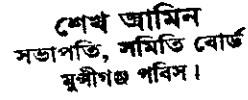 শেখ আমিন
সভাপতি, সমিতি বোর্ড
মুন্সীগঞ্জ পবিস।